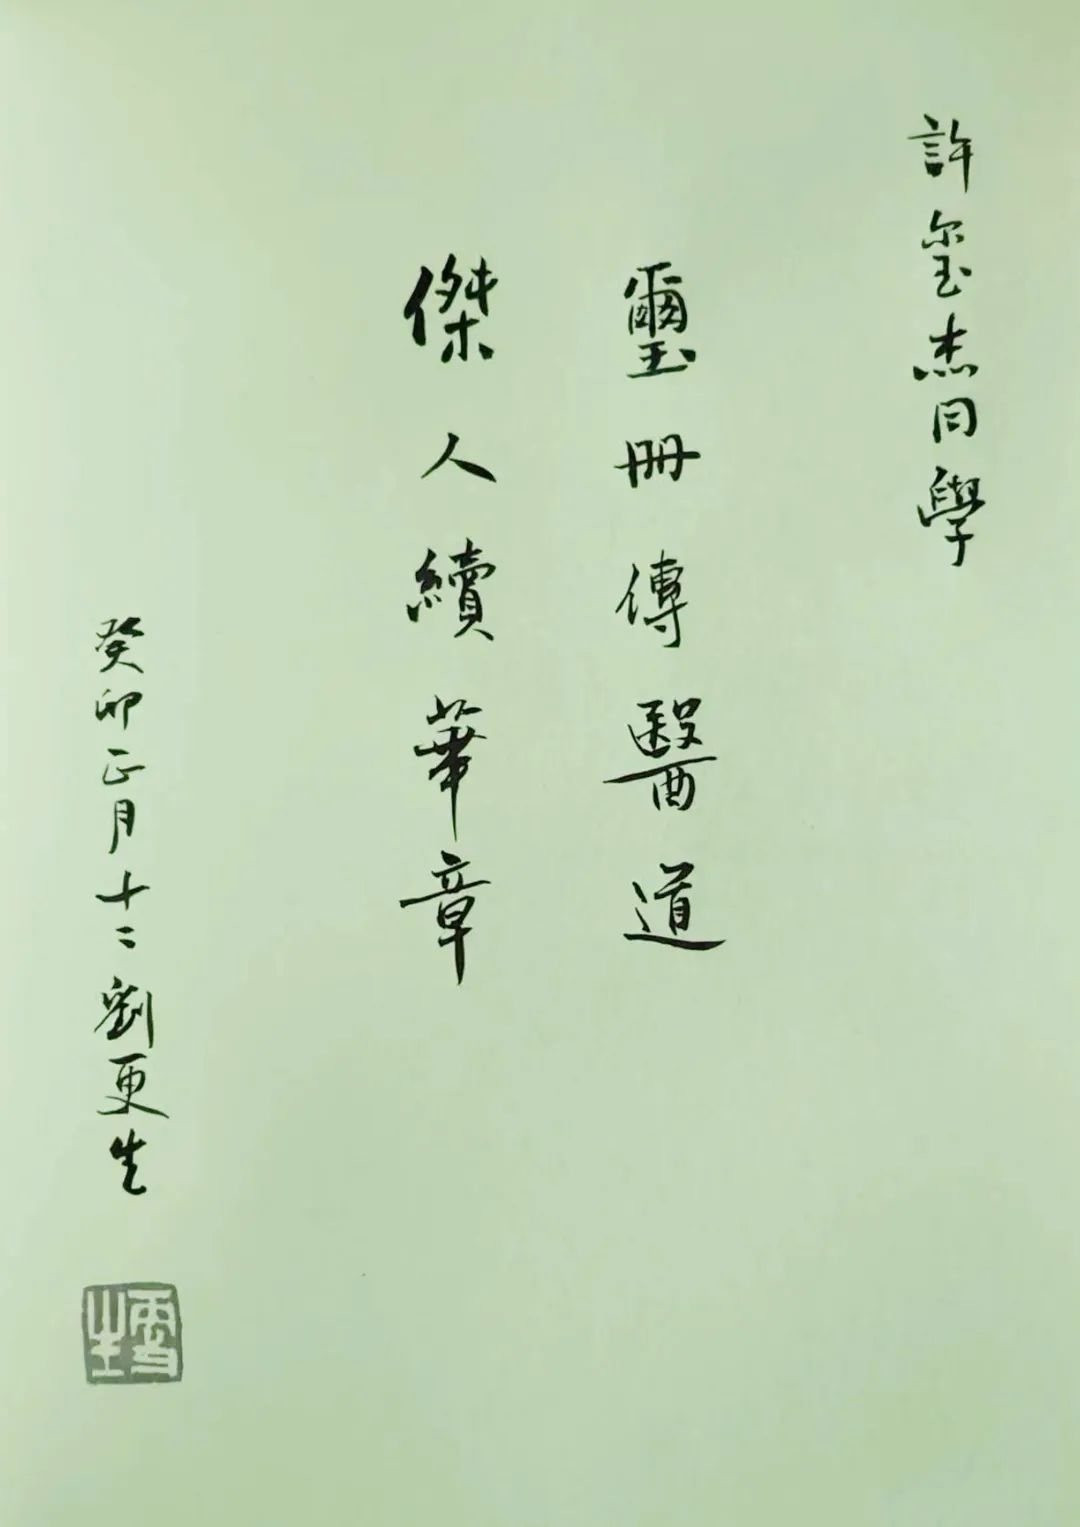 許玺杰同學
璽冊傳醫道
傑人續華章
癸卯正月十二劉更生
更生